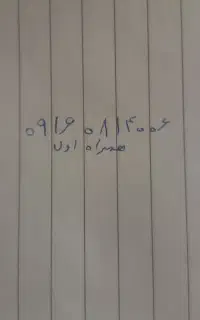 ۰۹۱۶ ۰۸۱۴۰۰۶
همراه اول